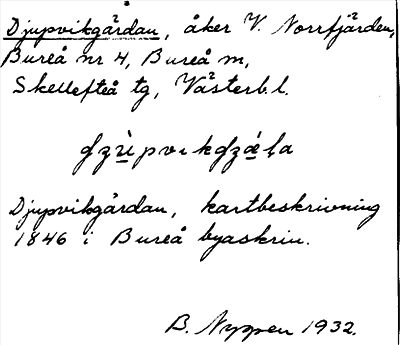 Djupvikgårdan, åker V. Norrfjärden,
Bureå nr 4, Bureå sn,
Skellefteå tg, Västerb.l.
Djupvikgårdan, kartbeskrivning
1846 i Bureå byaskrin.
B. Nyppen 1932.